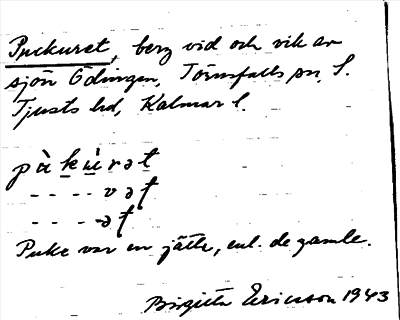 Puckuret, berg vid och vik av
sjön Ödingen, Törnsfalls sn, S.
Tjusts hd, Kalmar l.
pu̇̀ku̇̀rət
- - - - vət
- - - - ət
Puke var en jätte, enl. de gamle.
Birgitta Ericsson 1943